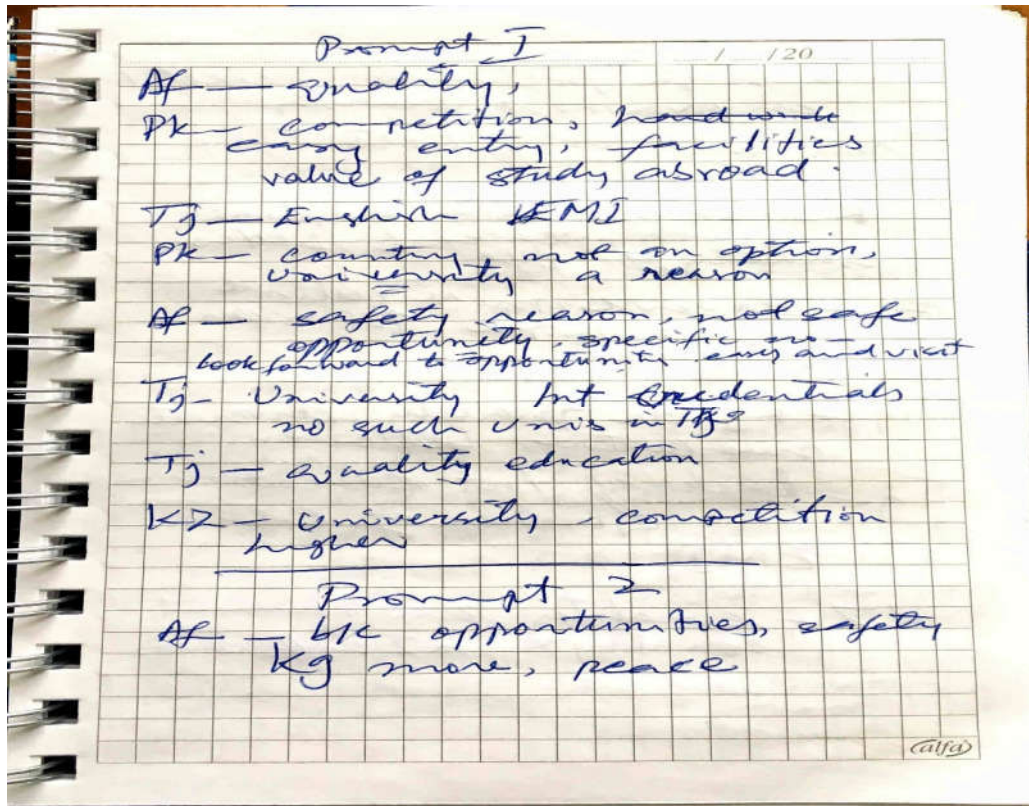 Prompt I
/ /20
Af — quality,
Pk — competition, hard work
easy entry, facilities
value of study abroad.
Tj — English EMI
Pk — country not an option,
university a reason
Af — safety reason, not safe
opportunity, specific
Look forward to opportunity and visit
Tj - University Int credentials
no such unis in
Tj — quality education
KZ — University, competition
higher
Prompt 2
Af — opportunities, safety
Kg more, peace
alfa